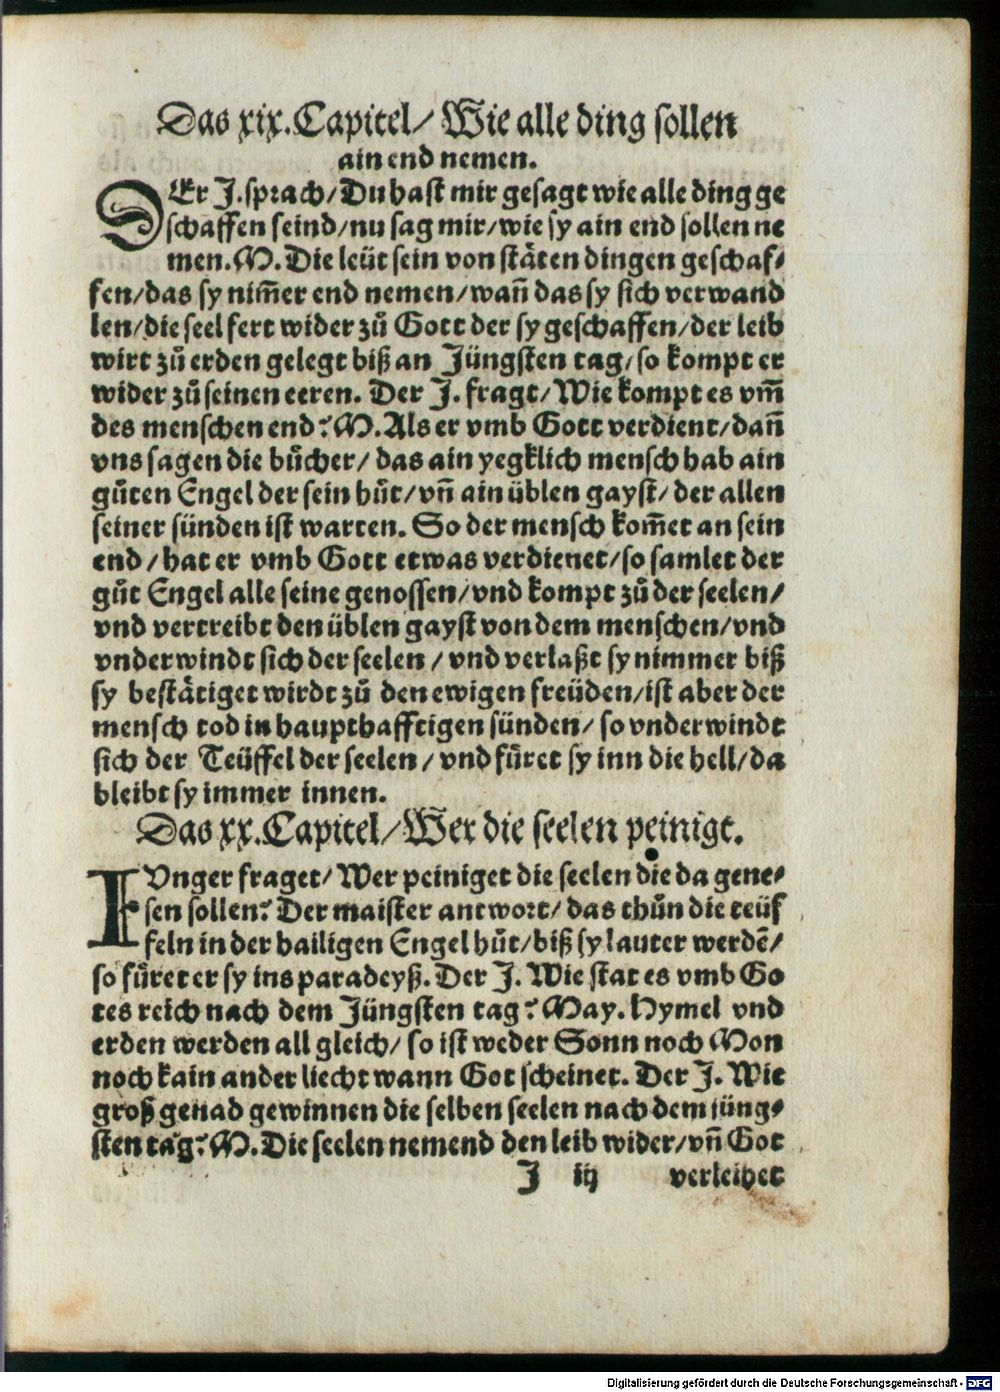 Das xix. Capitel/ Wie alle ding sollen
ain end nemen.
DEr J. sprach/ Du hast mir gesagt wie alle ding ge
schaffen seind/ nu sag mir/ wie sy ain end sollen ne
men. M. Die leüt sein von stäten dingen geschaf⸗
fen/ das sy nim̄er end nemen/ wañ das sy sich verwand
len/ die seel fert wider zů Gott der sy geschaffen/ der leib
wirt zů erden gelegt biß an Jüngsten tag/ so kompt er
wider zů seinen eeren. Der J. fragt/ Wie kompt es vm̄
des menschen end? M. Als er vmb Gott verdient/ dañ
vns sagen die bůcher/ das ain yegklich mensch hab ain
gůten Engel der sein hůt/ vñ ain üblen gayst/ der allen
seiner sünden ist warten. So der mensch kom̄et an sein
end/ hat er vmb Gott etwas verdienet/ so samlet der
gůt Engel alle seine genossen/ vnd kompt zů der seelen/
vnd vertreibt den üblen gayst von dem menschen/ vnd
vnderwindt sich der seelen/ vnd verlaßt sy nimmer biß
sy bestätiget wirdt zů den ewigen freüden/ ist aber der
mensch tod in haupthafftigen sünden/ so vnderwindt
sich der Teüffel der seelen/ vnd fůret sy inn die hell/ da
bleibt sy immer innen.
Das xx. Capitel/ Wer die seelen peinigt.
JVnger fraget/ Wer peiniget die seelen die da gene⸗
sen sollen? Der maister antwort/ das thůn die teüf
feln in der hailigen Engel hůt/ biß sy lauter werdē/
so fůret er sy ins paradeyß. Der J. Wie stat es vmb Go
tes reich nach dem Jüngsten tag? May. Hymel vnd
erden werden all gleich/ so ist weder Sonn noch Mon
noch kain ander liecht wann Got scheinet. Der J. Wie
groß genad gewinnen die selben seelen nach dem jüng⸗
sten tag? M. Die seelen nemend den leib wider/ vñ Got
J iij verleihet
Digitalisierung gefördert durch die Deutsche Forschungsgemeinschaft - DFG